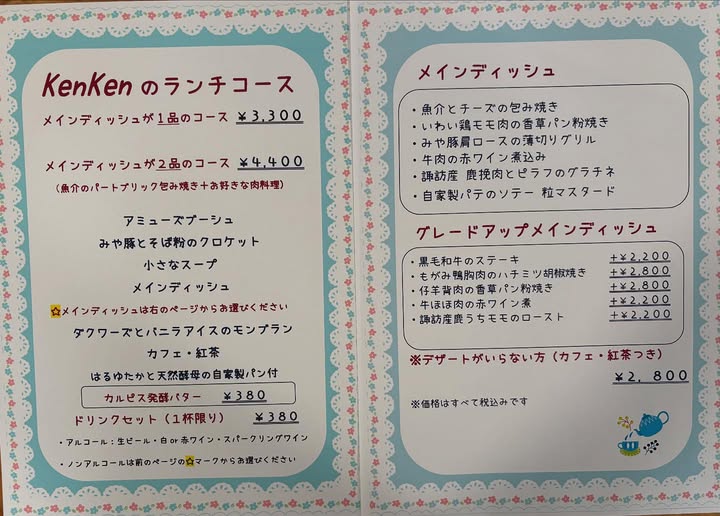 KenKenのランチコース
メインディッシュが1品のコース ¥3,300
メインディッシュが2品のコース ¥4,400
(魚介のパートブリック包み焼き+お好きな肉料理)
アミューズブーシュ
みや豚とそば粉のクロケット
小さなスープ
メインディッシュ
☆メインディッシュは右のページからお選びください
ダクワーズとバニラアイスのモンブラン
カフェ・紅茶
はるゆたかと天然酵母の自家製パン付
カルピス発酵バター ¥380
ドリンクセット(1杯限り) ¥380
・アルコール:生ビール・白or赤ワイン・スパークリングワイン
・ノンアルコールは前のページの☆マークからお選びください
メインディッシュ
・魚介とチーズの包み焼き
・いわい鶏モモ肉の香草パン粉焼き
・みや豚肩ロースの薄切りグリル
・牛肉の赤ワイン煮込み
・諏訪産 鹿挽肉とピラフのグラチネ
・自家製パテのソテー 粒マスタード
グレードアップメインディッシュ
・黒毛和牛のステーキ +¥2,200
・もがみ鴨胸肉のハチミツ胡椒焼き +¥2,800
・仔羊背肉の香草パン粉焼き +¥2,800
・牛ほほ肉の赤ワイン煮 +¥2,200
・諏訪産鹿うちモモのロースト +¥2,200
※デザートがいらない方(カフェ・紅茶つき)
¥2,800
※価格はすべて税込みです